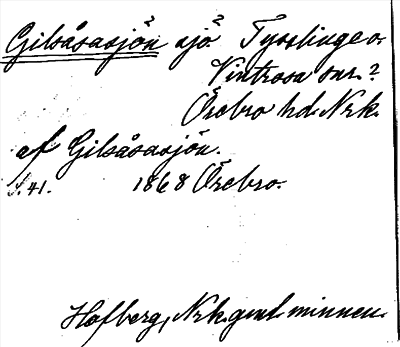 Gilsåsasjön sjö? Tysslinge o.
Vintrosa snr.?
Örebro hd. Nrk.
af Gilsåsasjön.
S. 41. 1868 Örebro.
Hofberg, Nrk. gml. minnen.